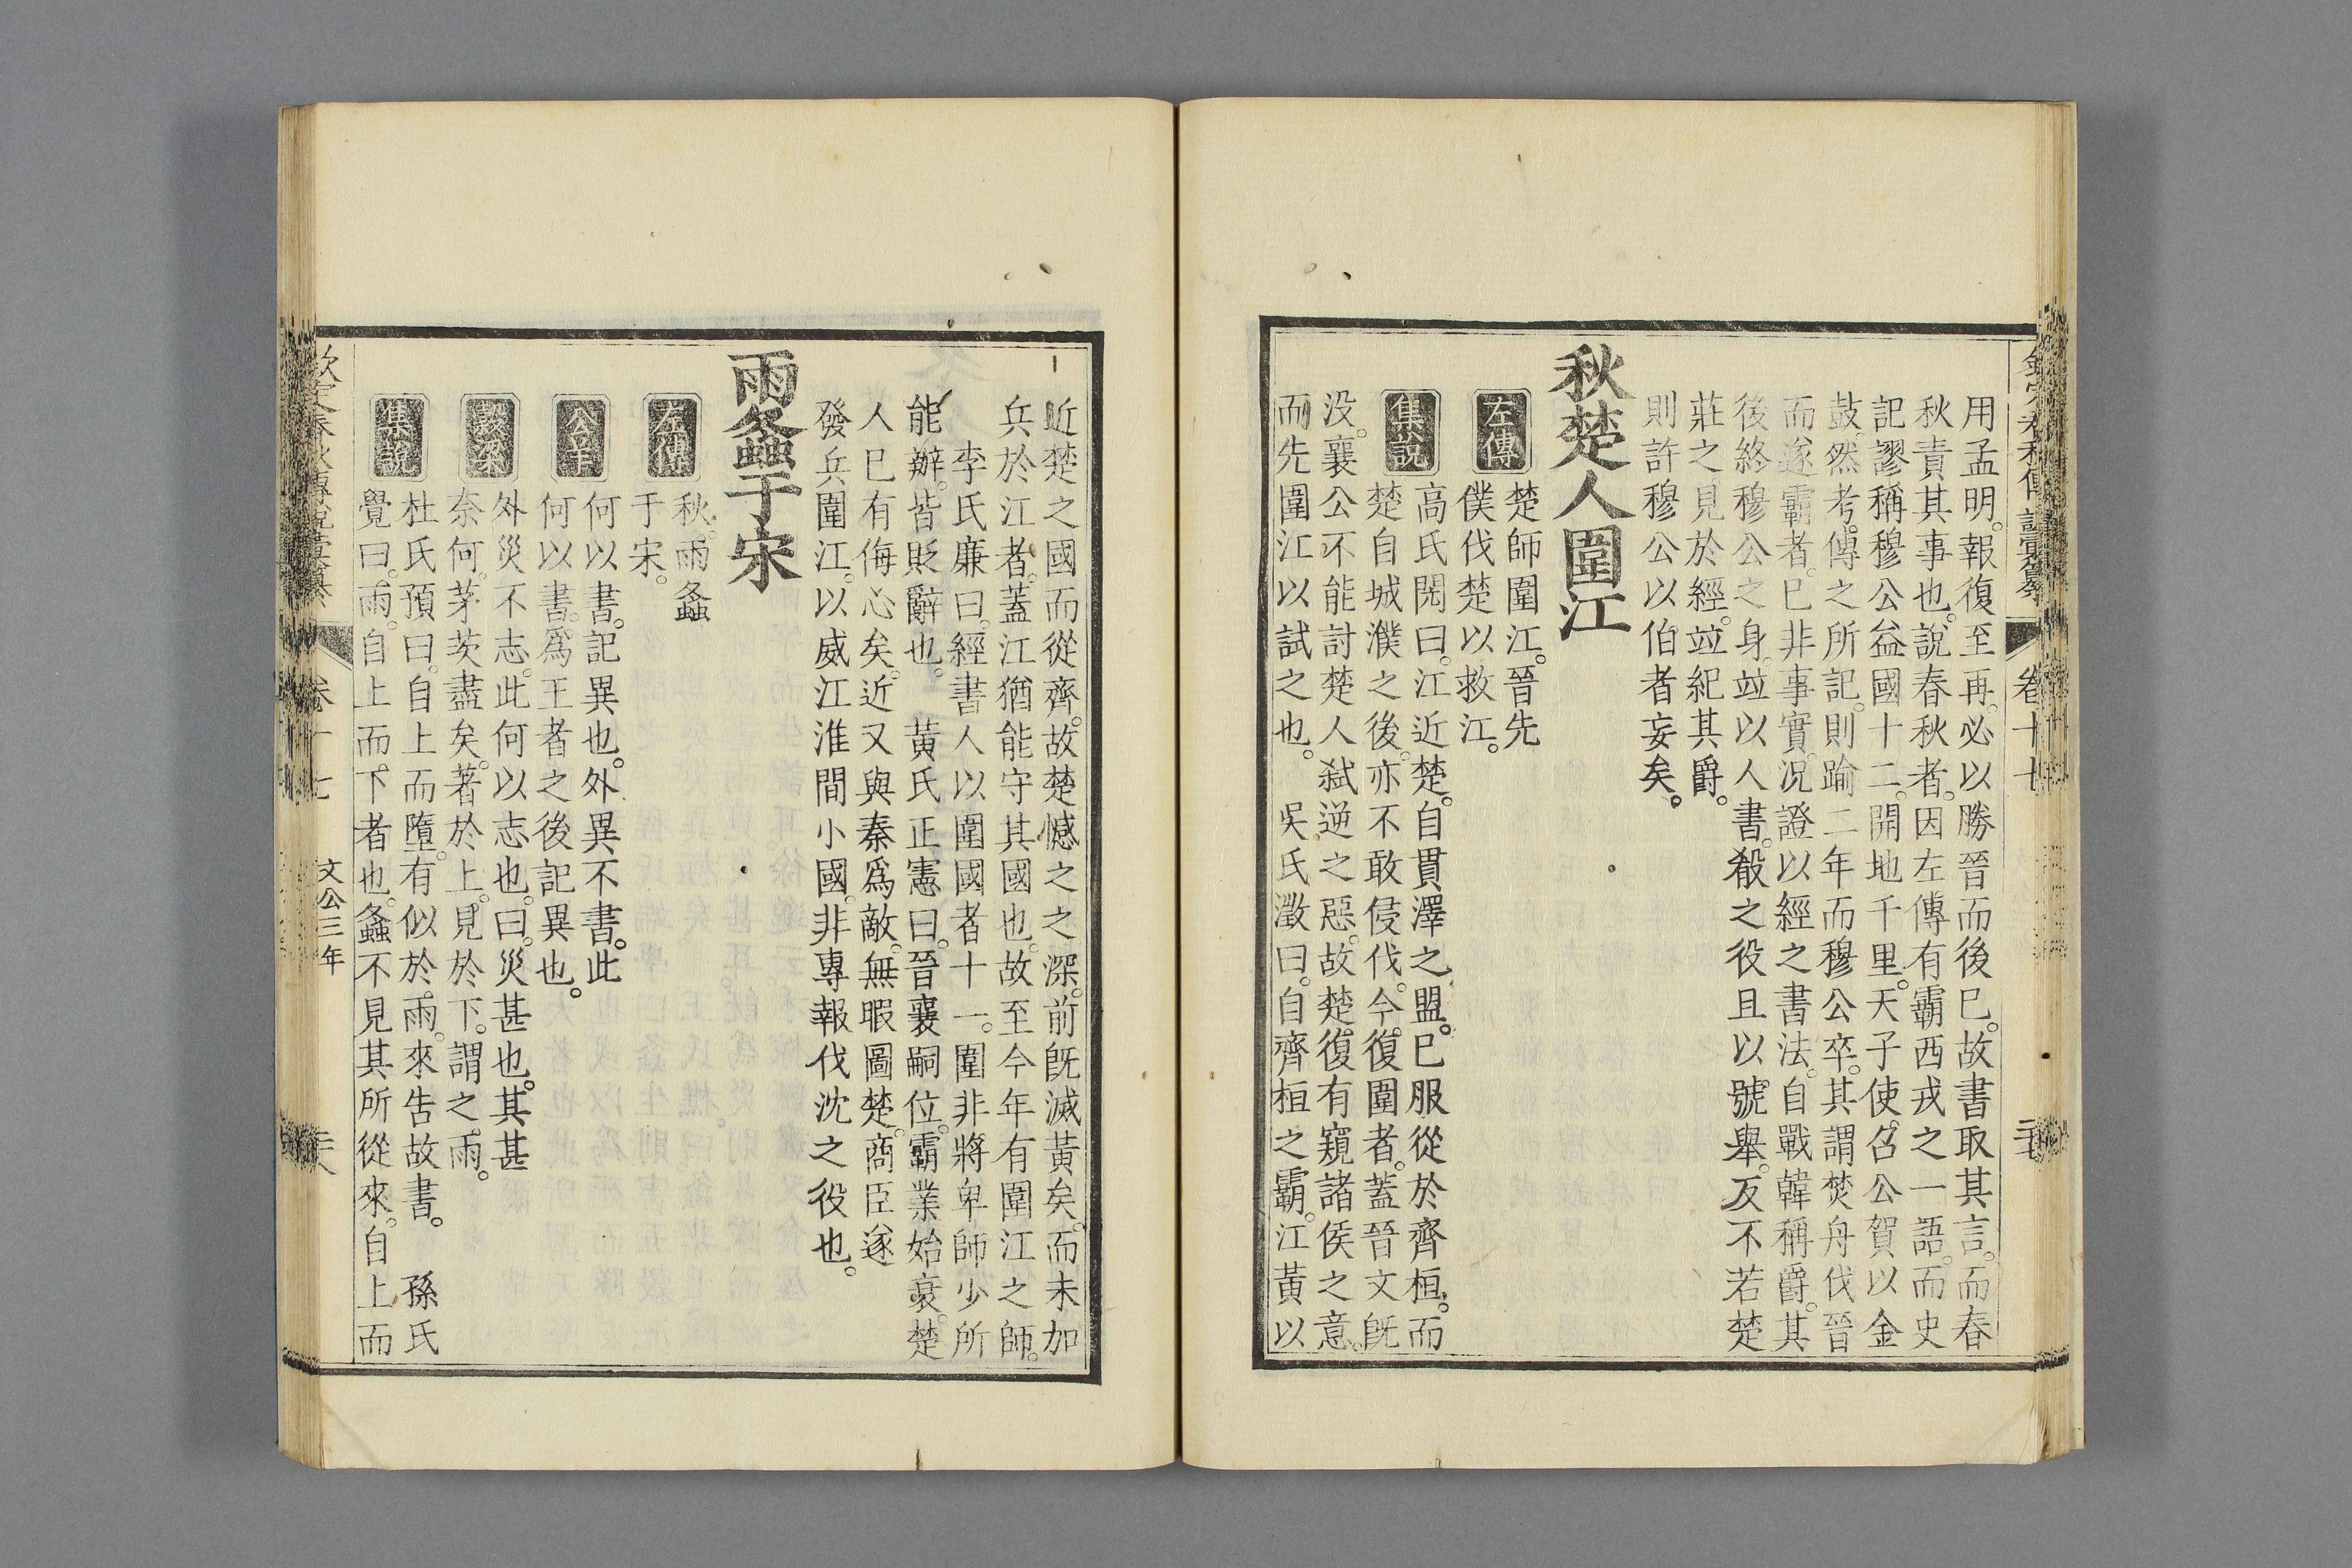 用孟明。報復至再。必以勝晉而後已。故書取其言。而春
秋責其事也。說春秋者。因左傳有霸西戎之一語。而史
記謬稱穆公益國十二。開地千里。天子使召公賀以金
鼓。然考傳之所記。則踰二年而穆公卒。其謂焚舟伐晉
而遂霸者。已非事實。況證以經之書法。自戰韓稱爵。其
後終穆公之身。竝以人書。殽之役且以號舉。反不若楚
莊之見於經。竝紀其爵。
則許穆公以伯者妄矣。
秋楚人圍江
左傳
楚師圍江。晉先
僕伐楚以救江。
集說
高氏閌曰。江近楚。自貫澤之盟。已服從於齊桓。而
楚自城濮之後。亦不敢侵伐。今復圍者。蓋晉文旣
没。襄公不能討楚人弑逆之惡。故楚復有窺諸侯之意。
而先圍江以試之也。 吳氏澂曰。自齊桓之霸。江黃以
近楚之國而從齊。故楚憾之之深。前旣滅黃矣。而未加
兵於江者。蓋江猶能守其國也。故至今年有圍江之師。
李氏廉曰。經書人以圍國者十一。圍非將卑師少所
能辦。皆貶辭也。 黃氏正憲曰。晉襄嗣位。霸業始衰。楚
人已有侮心矣。近又與秦爲敵。無暇圖楚。商臣遂
發兵圍江。以威江淮間小國。非專報伐沈之役也。
雨螽于宋
左傳
秋。雨螽
于宋。
公羊
何以書。記異也。外異不書。此
何以書。爲王者之後記異也。
穀梁
外災不志。此何以志也。曰。災甚也。其甚
奈何。茅茨盡矣。著於上。見於下。謂之雨。
集說
杜氏預曰。自上而墮。有似於雨。來告故書。 孫氏
覺曰。雨。自上而下者也。螽不見其所從來。自上而
卷十七
文公三年